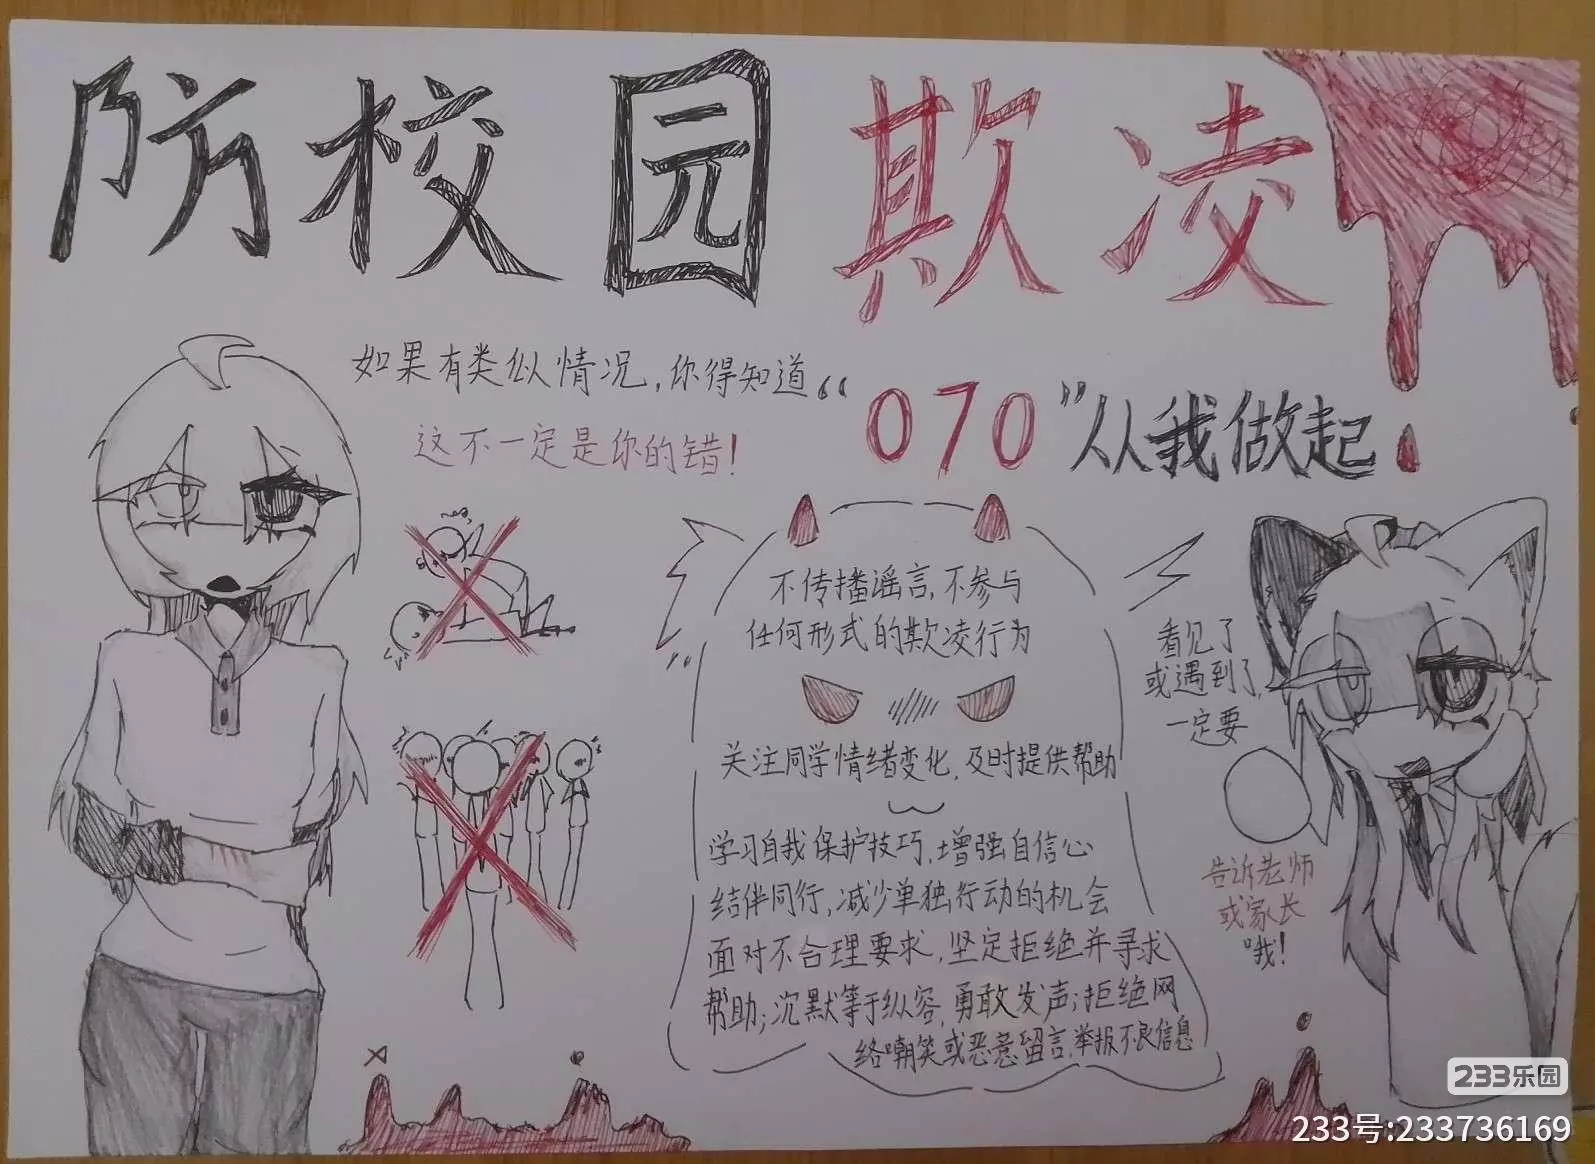 防校园欺凌
如果有类似情况，你得知道“070”从我做起！
这不一定是你的错！
不传播谣言，不参与
任何形式的欺凌行为
看见了
或遇到了，
一定要
关注同学情绪变化，及时提供帮助
学习自我保护技巧，增强自信心
结伴同行，减少单独行动的机会
告诉老师
或家长
哦！
面对不合理要求，坚定拒绝并寻求
帮助；沉默等于纵容，勇敢发声；拒绝网
络嘲笑或恶意留言，举报不良信息
233乐园
233号:233736169